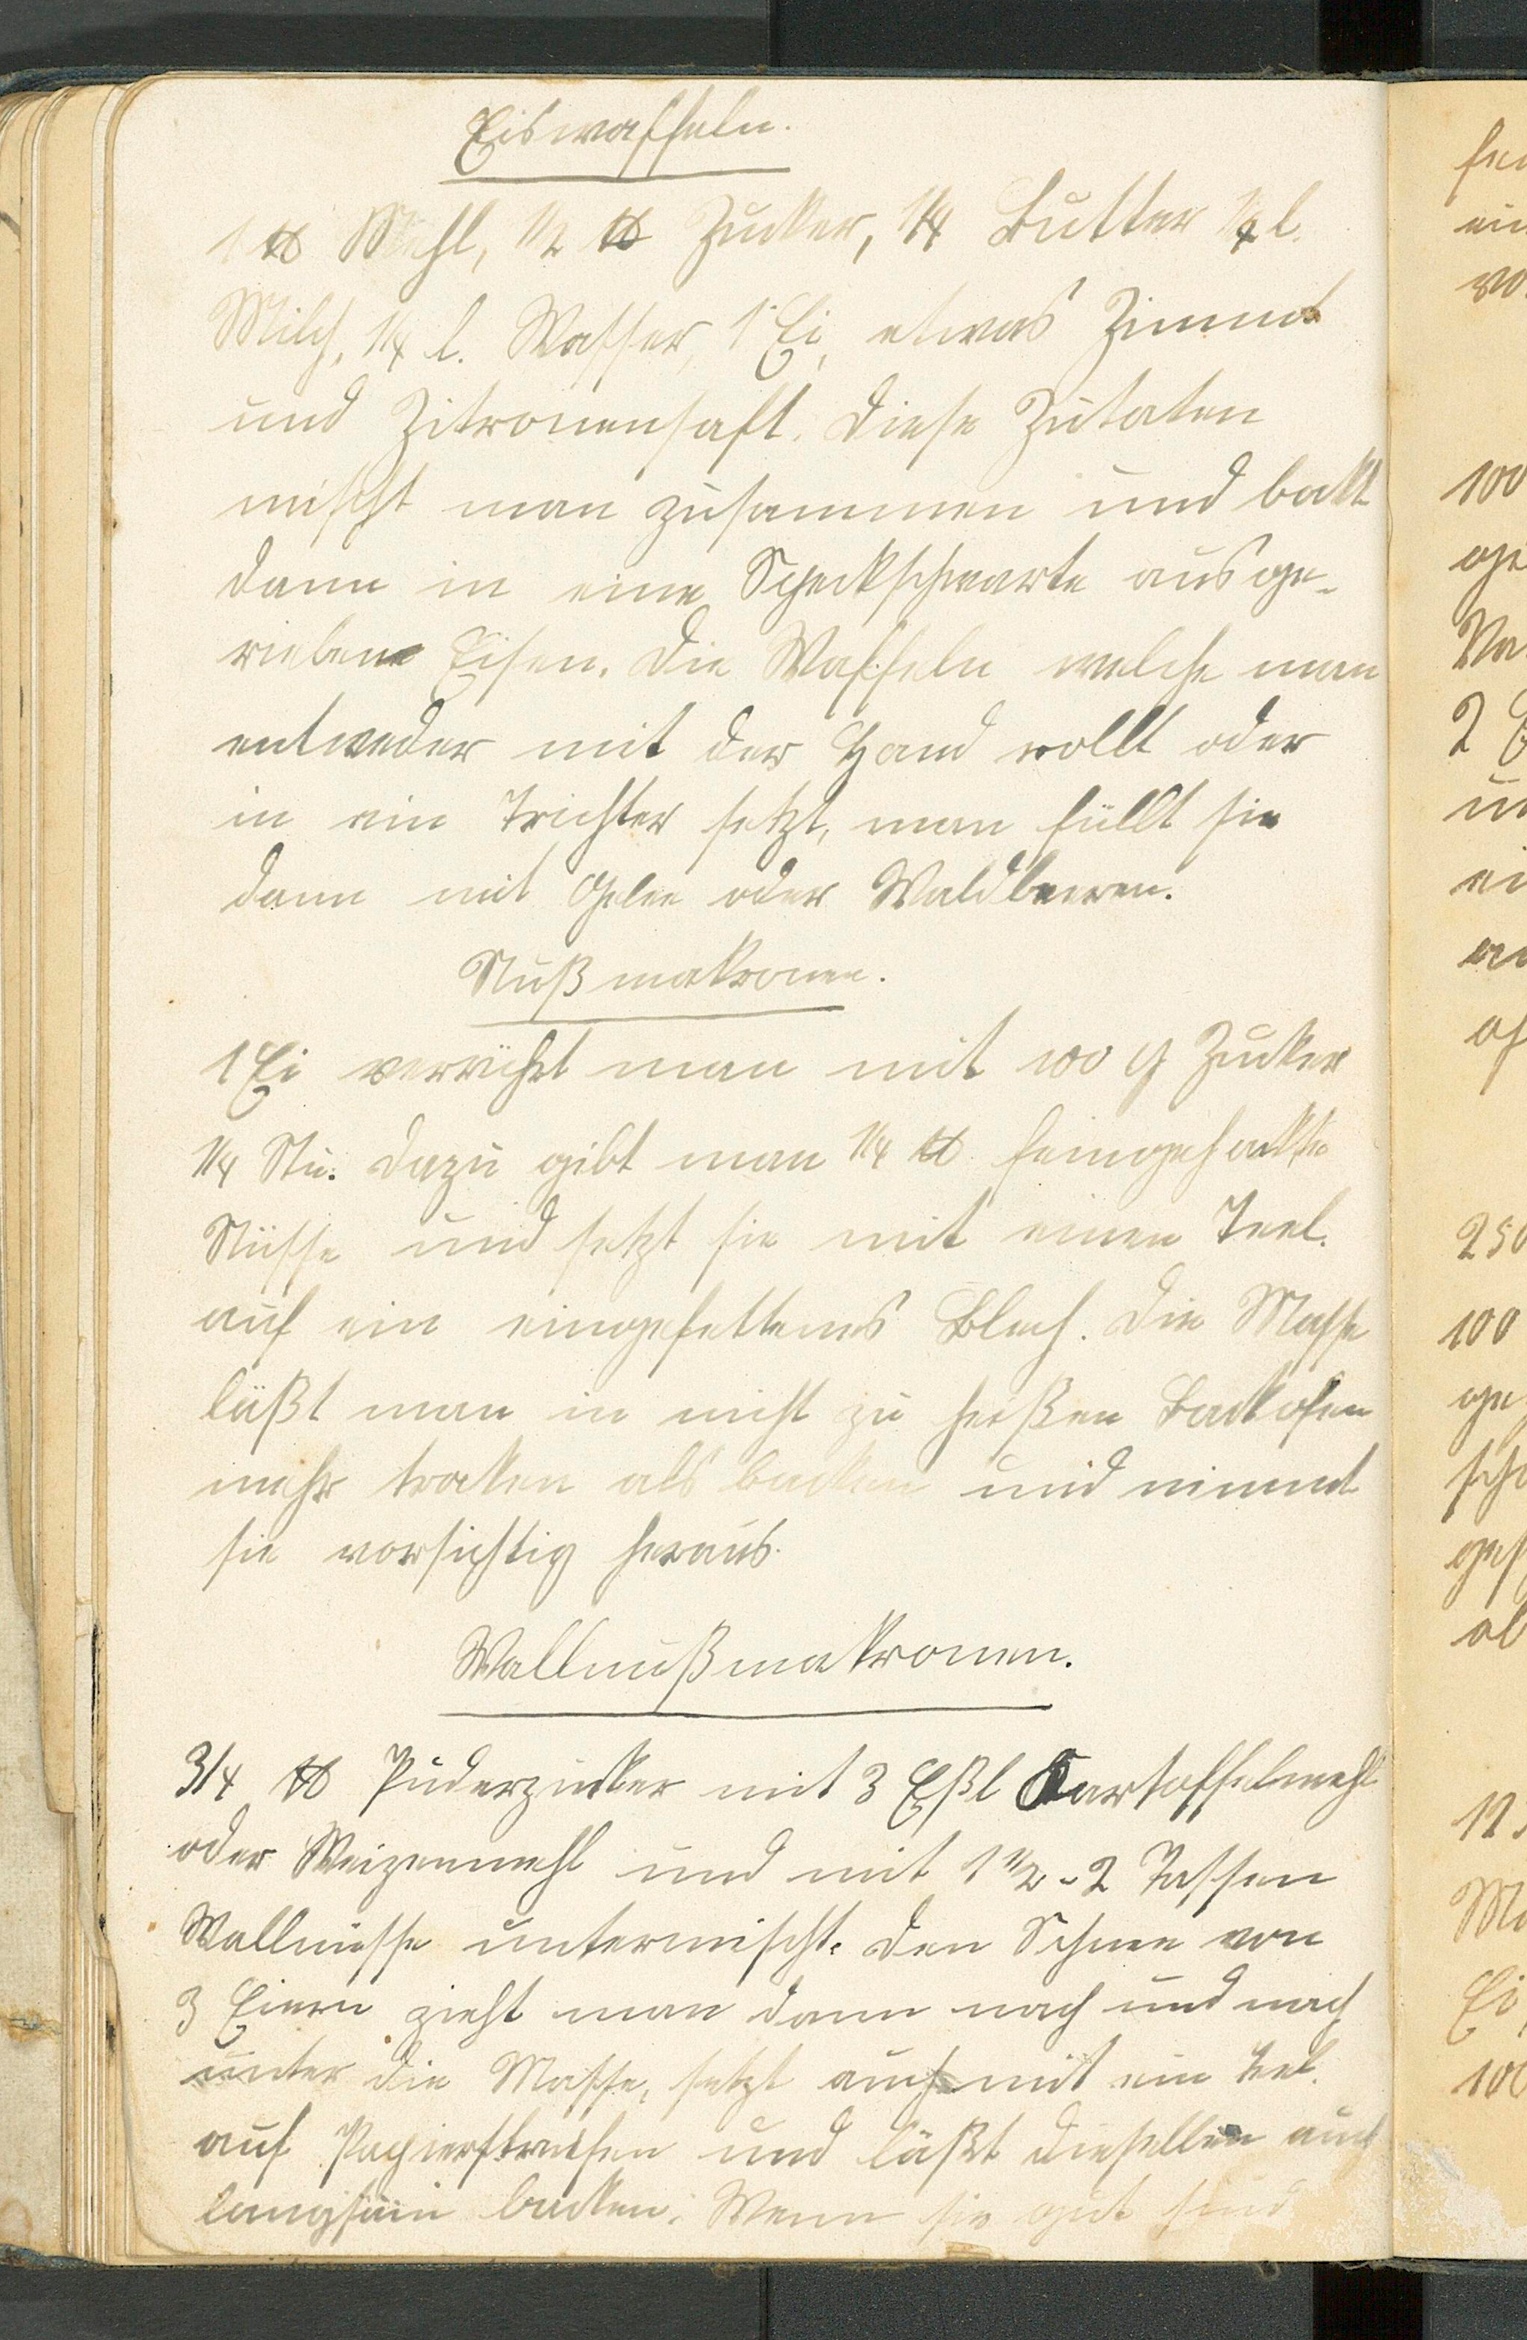 Eiswaffeln.
1 ℔ Mehl, 1/2 ℔ Zucker, 1/4 Butter 1/4 l.
Milch, 1/4 l. Wasser, 1 Ei, etwas Zimmt
und Zitronensaft. Diese Zutaten
mischt man zusammen und bakt
dann in eine Speckschwarte ausge-
riebene Eisen. Die Waffeln welche man
entweder mit der Hand rollt oder
in ein Trichter setzt, man füllt sie
dann mit Gelee oder Waldbeeren.
Nußmakronen.
1 Ei verrührt man mit 100 g Zucker
1/4 Stu. dazu gibt man 1/4 ℔ feingehackte
Nüsse und setzt sie mit einen Teel.
auf ein eingefettenes Blech. Die Masse
läßt man in nicht zu heißen Backofen
mehr trocken als backen und nimmt
sie vorsichtig heraus.
Wallnußmakronen.
3/4 ℔ Puderzucker mit 3 Eßl Kartoffelmehl
oder Weizenmehl und mit 1 1/2 - 2 Tassen
Wallnüsse untermischt. Den Schnee von
3 Eiern zieht man dann nach und nach
unter die Masse, setzt auch mit ein Teel.
auf Papierstreifen und läßt dieselben auch
langsam backen. Wenn sie gut sind